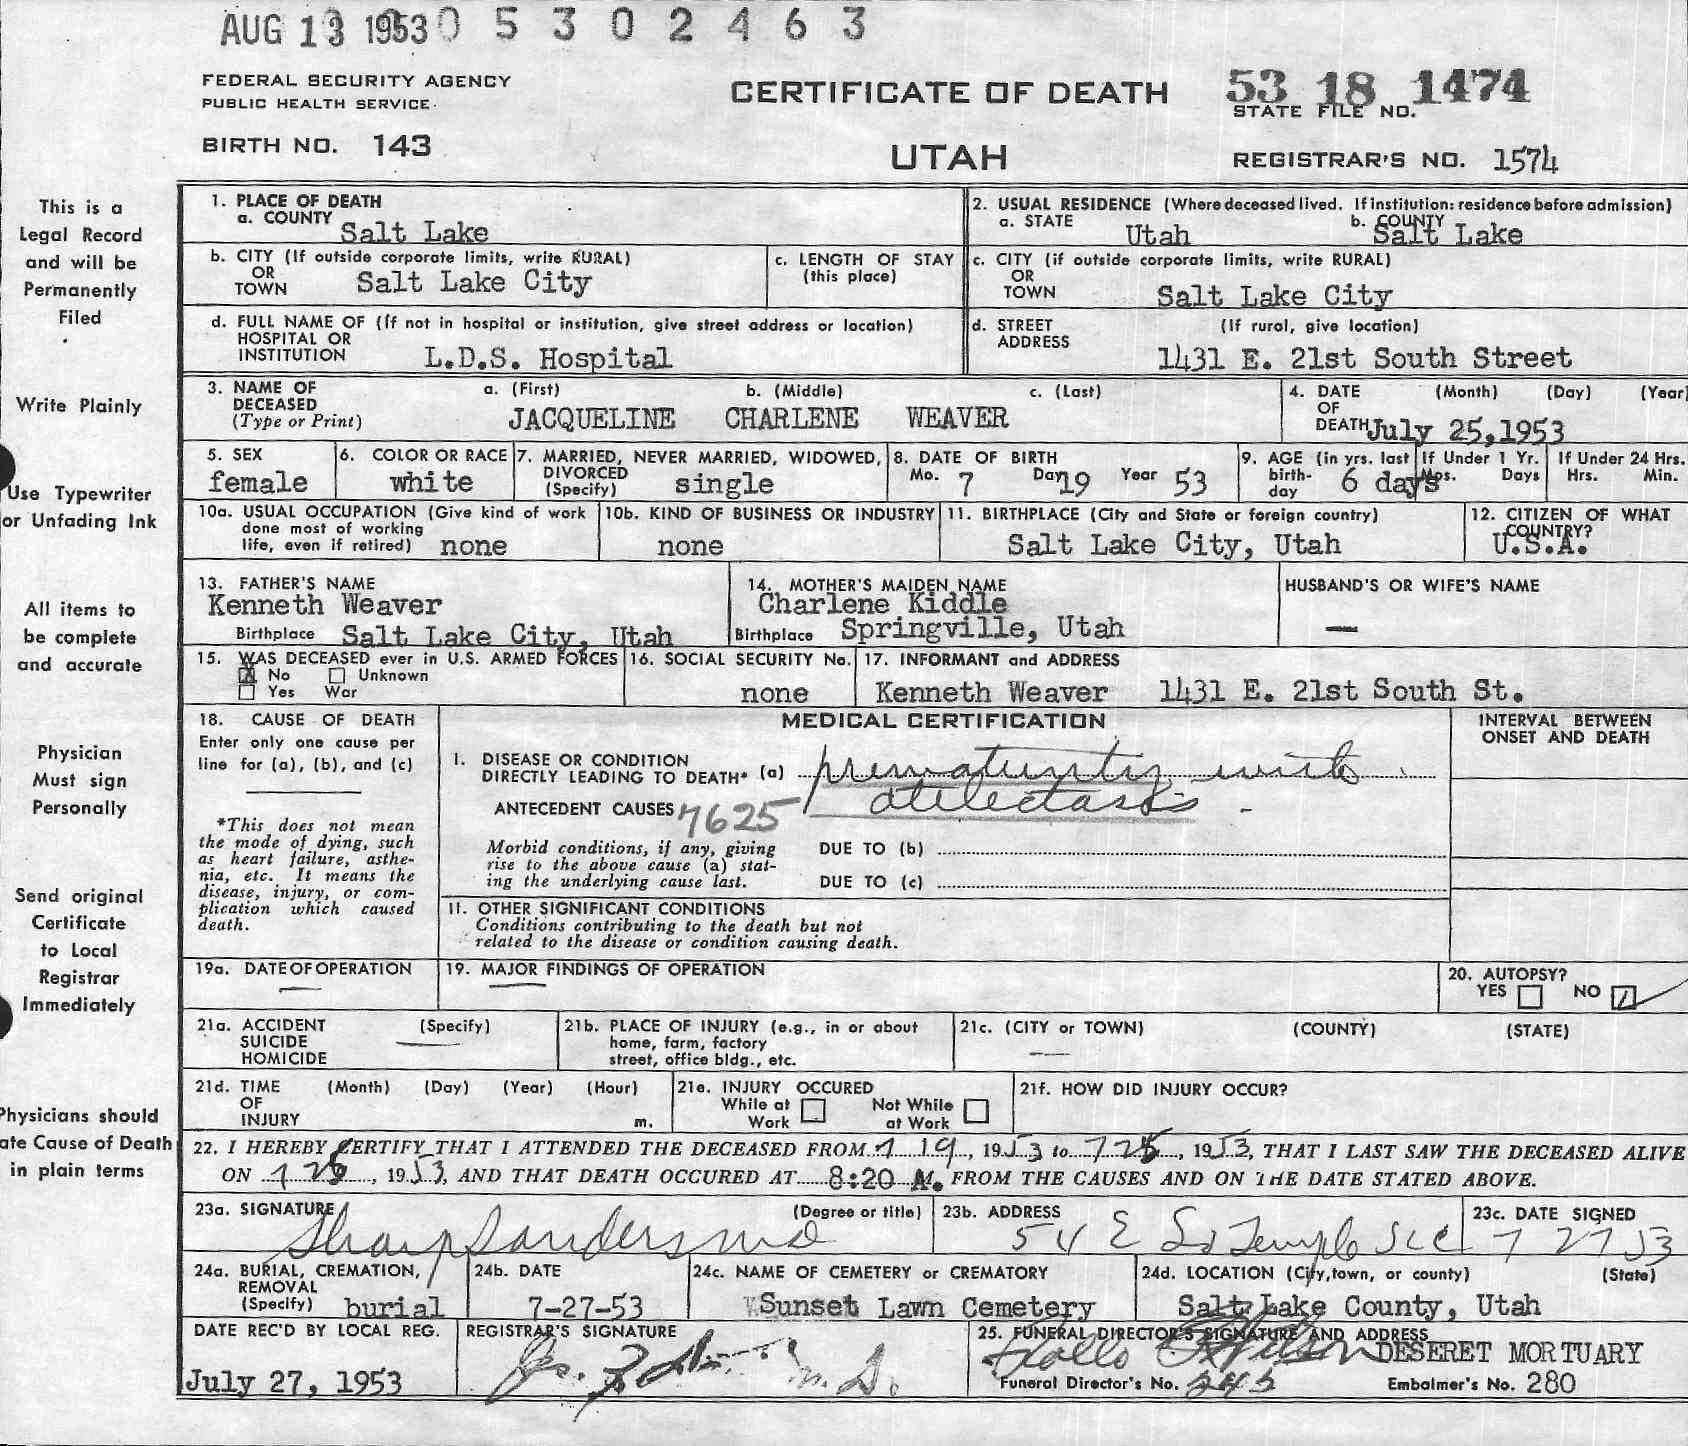 AUG 13 1953 0 5 3 0 2 4 6 3
FEDERAL SECURITY AGENCY
PUBLIC HEALTH SERVICE
BIRTH NO. 143
CERTIFICATE OF DEATH
UTAH
53 18 1474
STATE FILE NO.
REGISTRAR'S NO. 1574
This is a
Legal Record
and will be
Permanently
Filed
Write Plainly
Use Typewriter
or Unfading Ink
All items to
be complete
and accurate
Physician
Must sign
Personally
Send original
Certificate
to Local
Registrar
Immediately
Physicians should
ate Cause of Death
in plain terms
1. PLACE OF DEATH
a. COUNTY Salt Lake
2. USUAL RESIDENCE (Where deceased lived. If institution: residence before admission)
a. STATE Utah b. COUNTY Salt Lake
b. CITY (If outside corporate limits, write RURAL)
OR
TOWN Salt Lake City
c. LENGTH OF STAY
(this place)
c. CITY (if outside corporate limits, write RURAL)
OR
TOWN Salt Lake City
d. FULL NAME OF (If not in hospital or institution, give street address or location)
HOSPITAL OR
INSTITUTION L.D.S. Hospital
d. STREET (If rural, give location)
ADDRESS 1431 E. 21st South Street
3. NAME OF DECEASED (Type or Print) a. (First) b. (Middle) c. (Last)
JACQUELINE CHARLENE WEAVER
4. DATE (Month) (Day) (Year)
OF
DEATH July 25,1953
5. SEX
female
6. COLOR OR RACE
white
7. MARRIED, NEVER MARRIED, WIDOWED,
DIVORCED
(Specify) single
8. DATE OF BIRTH
Mo. 7 Day 19 Year 53
9. AGE (in yrs. last birth-day 6 days
If Under 1 Yr.
Mos. Days
If Under 24 Hrs.
Hrs. Min.
10a. USUAL OCCUPATION (Give kind of work
done most of working
life, even if retired) none
10b. KIND OF BUSINESS OR INDUSTRY
none
11. BIRTHPLACE (City and State or foreign country)
Salt Lake City, Utah
12. CITIZEN OF WHAT
COUNTRY?
U.S.A.
13. FATHER'S NAME
Kenneth Weaver
Birthplace Salt Lake City, Utah
14. MOTHER'S MAIDEN NAME
Charlene Kiddle
Birthplace Springville, Utah
HUSBAND'S OR WIFE'S NAME
—
15. WAS DECEASED ever in U.S. ARMED FORCES
X No Unknown
Yes War
16. SOCIAL SECURITY No.
none
17. INFORMANT and ADDRESS
Kenneth Weaver 1431 E. 21st South St.
18. CAUSE OF DEATH
Enter only one cause per
line for (a), (b), and (c)
*This does not mean
the mode of dying, such
as heart failure, asthe-
nia, etc. It means the
disease, injury, or com-
plication which caused
death.
MEDICAL CERTIFICATION
INTERVAL BETWEEN
ONSET AND DEATH
I. DISEASE OR CONDITION
DIRECTLY LEADING TO DEATH* (a) prematurity with
atelectasis
ANTECEDENT CAUSES 7625
Morbid conditions, if any, giving
rise to the above cause (a) stat-
ing the underlying cause last.
DUE TO (b)
DUE TO (c)
11. OTHER SIGNIFICANT CONDITIONS
Conditions contributing to the death but not
related to the disease or condition causing death.
19a. DATE OF OPERATION
—
19. MAJOR FINDINGS OF OPERATION
—
20. AUTOPSY?
YES NO
21a. ACCIDENT (Specify)
SUICIDE —
HOMICIDE
21b. PLACE OF INJURY (e.g., in or about
home, farm, factory
street, office bldg., etc.
21c. (CITY or TOWN) (COUNTY) (STATE)
—
21d. TIME (Month) (Day) (Year) (Hour)
OF
INJURY m.
21e. INJURY OCCURED
While at Work Not While at Work
21f. HOW DID INJURY OCCUR?
22. I HEREBY CERTIFY THAT I ATTENDED THE DECEASED FROM 7 19, 1953 to 7 25, 1953, THAT I LAST SAW THE DECEASED ALIVE
ON 7 25, 1953, AND THAT DEATH OCCURED AT 8:20 A M. FROM THE CAUSES AND ON THE DATE STATED ABOVE.
23a. SIGNATURE (Degree or title)
Sharp Sanders MD
23b. ADDRESS
54 E So Temple SLC
23c. DATE SIGNED
7 27 53
24a. BURIAL, CREMATION,
REMOVAL
(Specify) burial
24b. DATE
7-27-53
24c. NAME OF CEMETERY or CREMATORY
Sunset Lawn Cemetery
24d. LOCATION (City, town, or county) (State)
Salt Lake County, Utah
DATE REC'D BY LOCAL REG.
July 27, 1953
REGISTRAR'S SIGNATURE
M.D.
25. FUNERAL DIRECTOR'S SIGNATURE AND ADDRESS
DESERET MORTUARY
Funeral Director's No. 245 Embalmer's No. 280